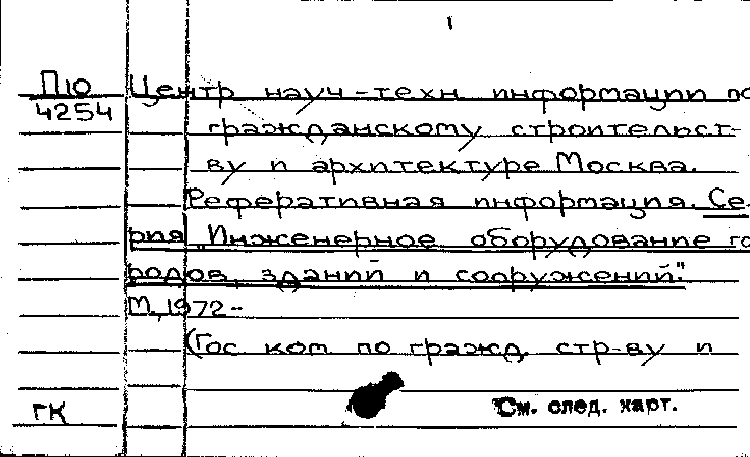 1
П10
4254
Центр науч-техн информации по
гражданскому строительст-
ву и архитектуре Москва.
Реферативная информация. Се-
рия „Инженерное оборудование го
родов, зданий и сооружений."
М, 1972-
(Гос ком по гражд. стр-ву и
гк
См. след. карт.